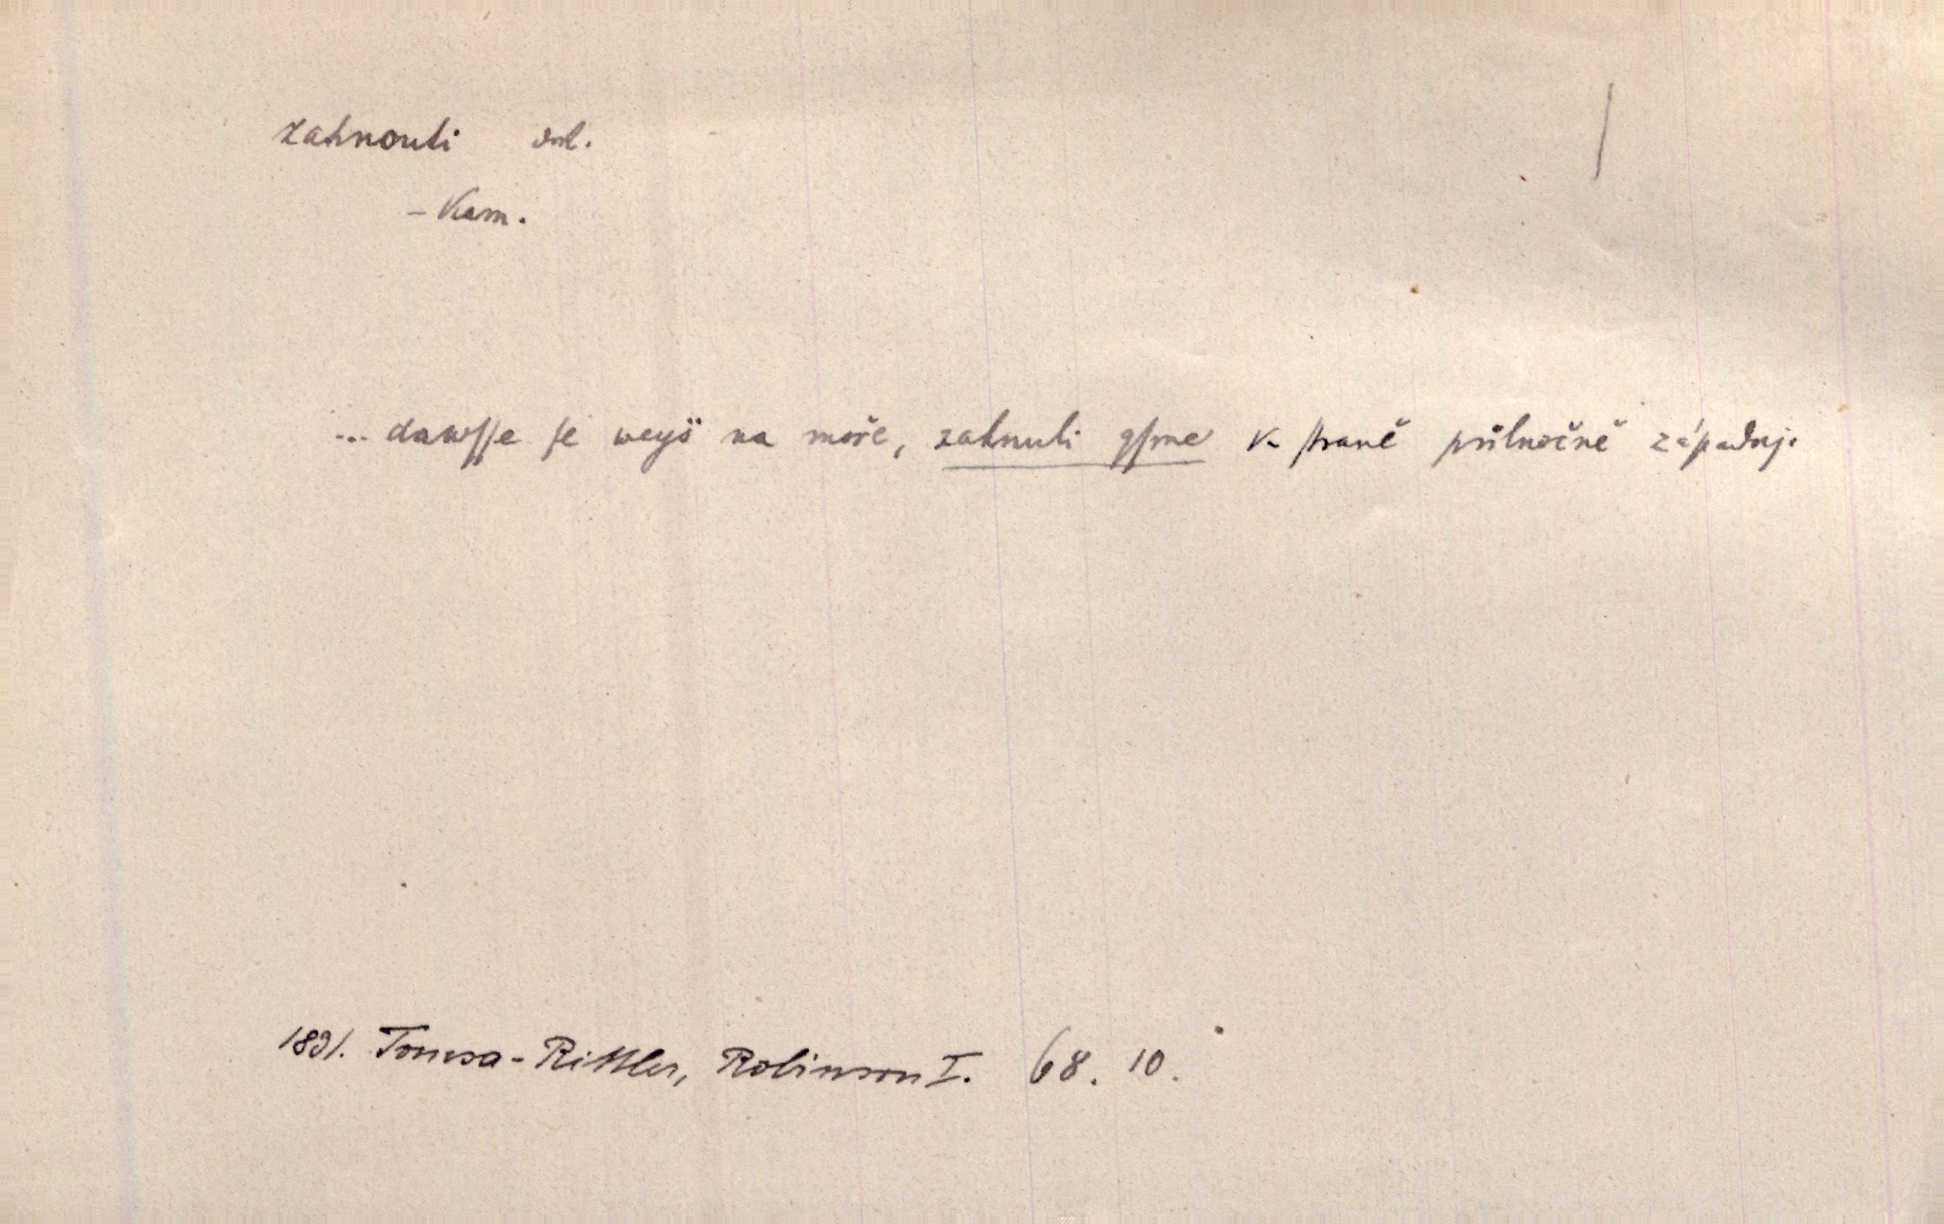 zahnouti dok.
– kam.
... dawſſe ſe weyš na moře, zahnuli gſme k ſtraně půlnočně západnj.
1831. Tomsa-Rittler, Robinson I. 68. 10.